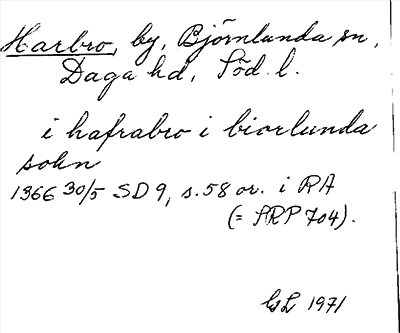 Harbro, by, Björnlunda sn,
Daga hd, Söd. l.
i hafrabro i biorlunda
sokn
1366 30/5 SD 9, s. 58 or. i RA
(= SRP 704).
GL 1971